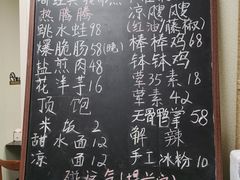 热腾腾
跳水蛙98
爆脆肠58(晚)
盐煎肉48
花芋羊16
顶饱
米饭2
甜水面12
凉面12
凉飕飕
(红油/藤椒)
棒棒鸡68
钵钵鸡
荤35素18
荤素42
无骨鸭掌58
解辣
手工冰粉10